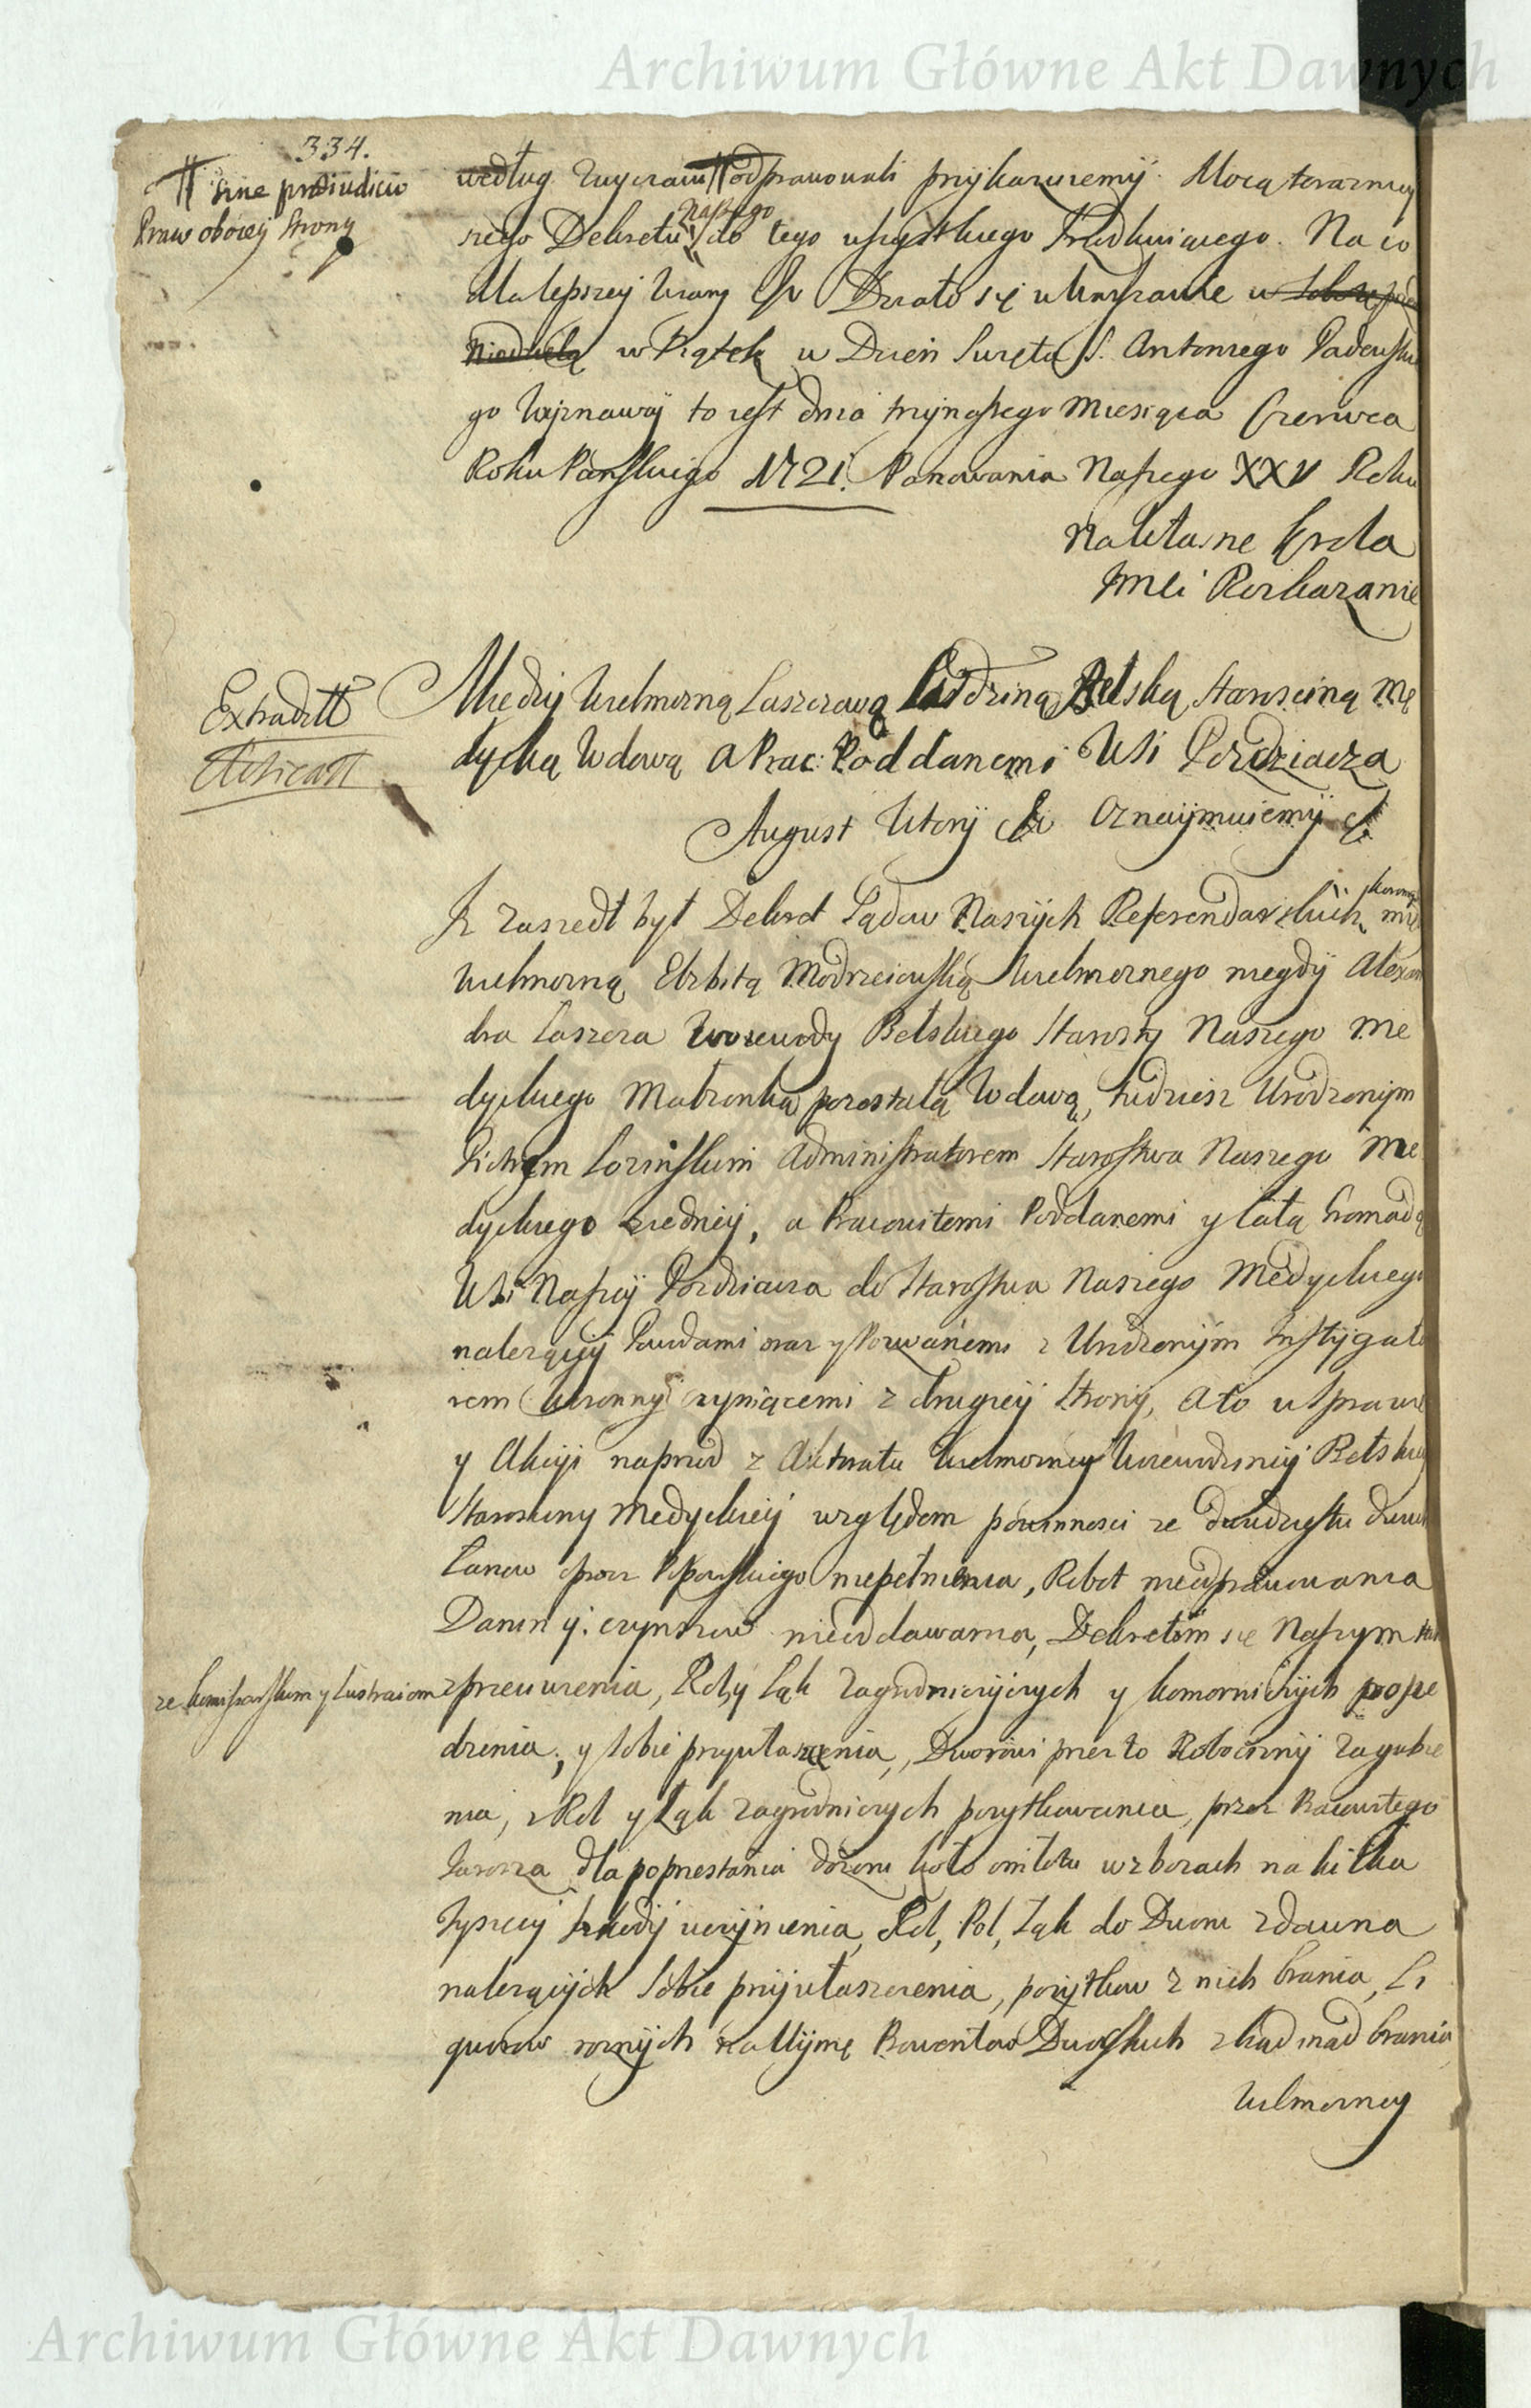 Archiwum Główne Akt Dawnych
334.
sine praeiudicio
Praw obocey Strony
według zwyczaiu odprawowali przykazuiemy. Mocą terazniey
szego Dekretu Naszego do tego wszystkiego
Na co
dla lepszey wiary Działo się w Warszawie w
Niedzielą w Piątek w Dzien Swięta S. Antoniego Padewskie
go Wyznawcy to iest dnia trzynastego Miesiąca Czerwca
Roku Panskiego 1721. Panowania Naszego XXV Roku
Na własne Krola
Jmci Rozkazanie
Extradit
Między Wielmozną Laszczową Wdziną Bełską Starosciną Me
dycką Wdową a Prac: Poddanemi Wsi Pozdziacza
August Wtory Oznaymuiemy
Iz zaszedł był Dekret Sądow Naszych Referendarskich
Wielmozną Elzbietą Modrzeiowską Wielmoznego niegdy Alexan
dra Laszcza Woiewody Bełskiego Starosty Naszego Me
dyckiego Małzonką pozostałą Wdową, tudziesz Urodzonym
Piotrem Administratorem Starostwa Naszego Me
dyckiego z iedney, a Pracowitemi Poddanemi y całą Gromadą
Wsi Naszey Pozdziacza do Starostwa Naszego Medyckiego
nalezącey Powodami oraz y Pozwanemi z Urodzonym Instygato
rem Koronnym czyniącemi z drugiey Strony, a to w Sprawie
y Akcyi naprzod z Aktoratu Wielmozney Woiewodziney Bełskiey
Starosciny Medyckiey względem powinnosci ze dwudziestu dwuch
Łanow oprocz Popowskiego niepełnienia, Robot nieodprawowania
Danin y czynszow nieoddawania, Dekretom się Naszym
ze komissarskim y lustraciom
sprzeciwienia, Roly Łąk Zagrodniczych y komorniczych posie
dzenia, y sobie przywłaszczenia, Dworowi przez to Robocizny zagubie
nia, z Rol y Łąk zagrodniczych pozytkowania, przez Pracowitego
dla poprzestania w zbozach na kilka
tysięcy szkody uczynienia, Rol, Pol, Łąk do Dworu zdawna
nalezących sobie przywłaszczenia, pozytkow z nich brania, Li
quorow roznych na Uymę Prowentow Dworskich zkad inąd brania
Wielmozney
Archiwum Główne Akt Dawnych